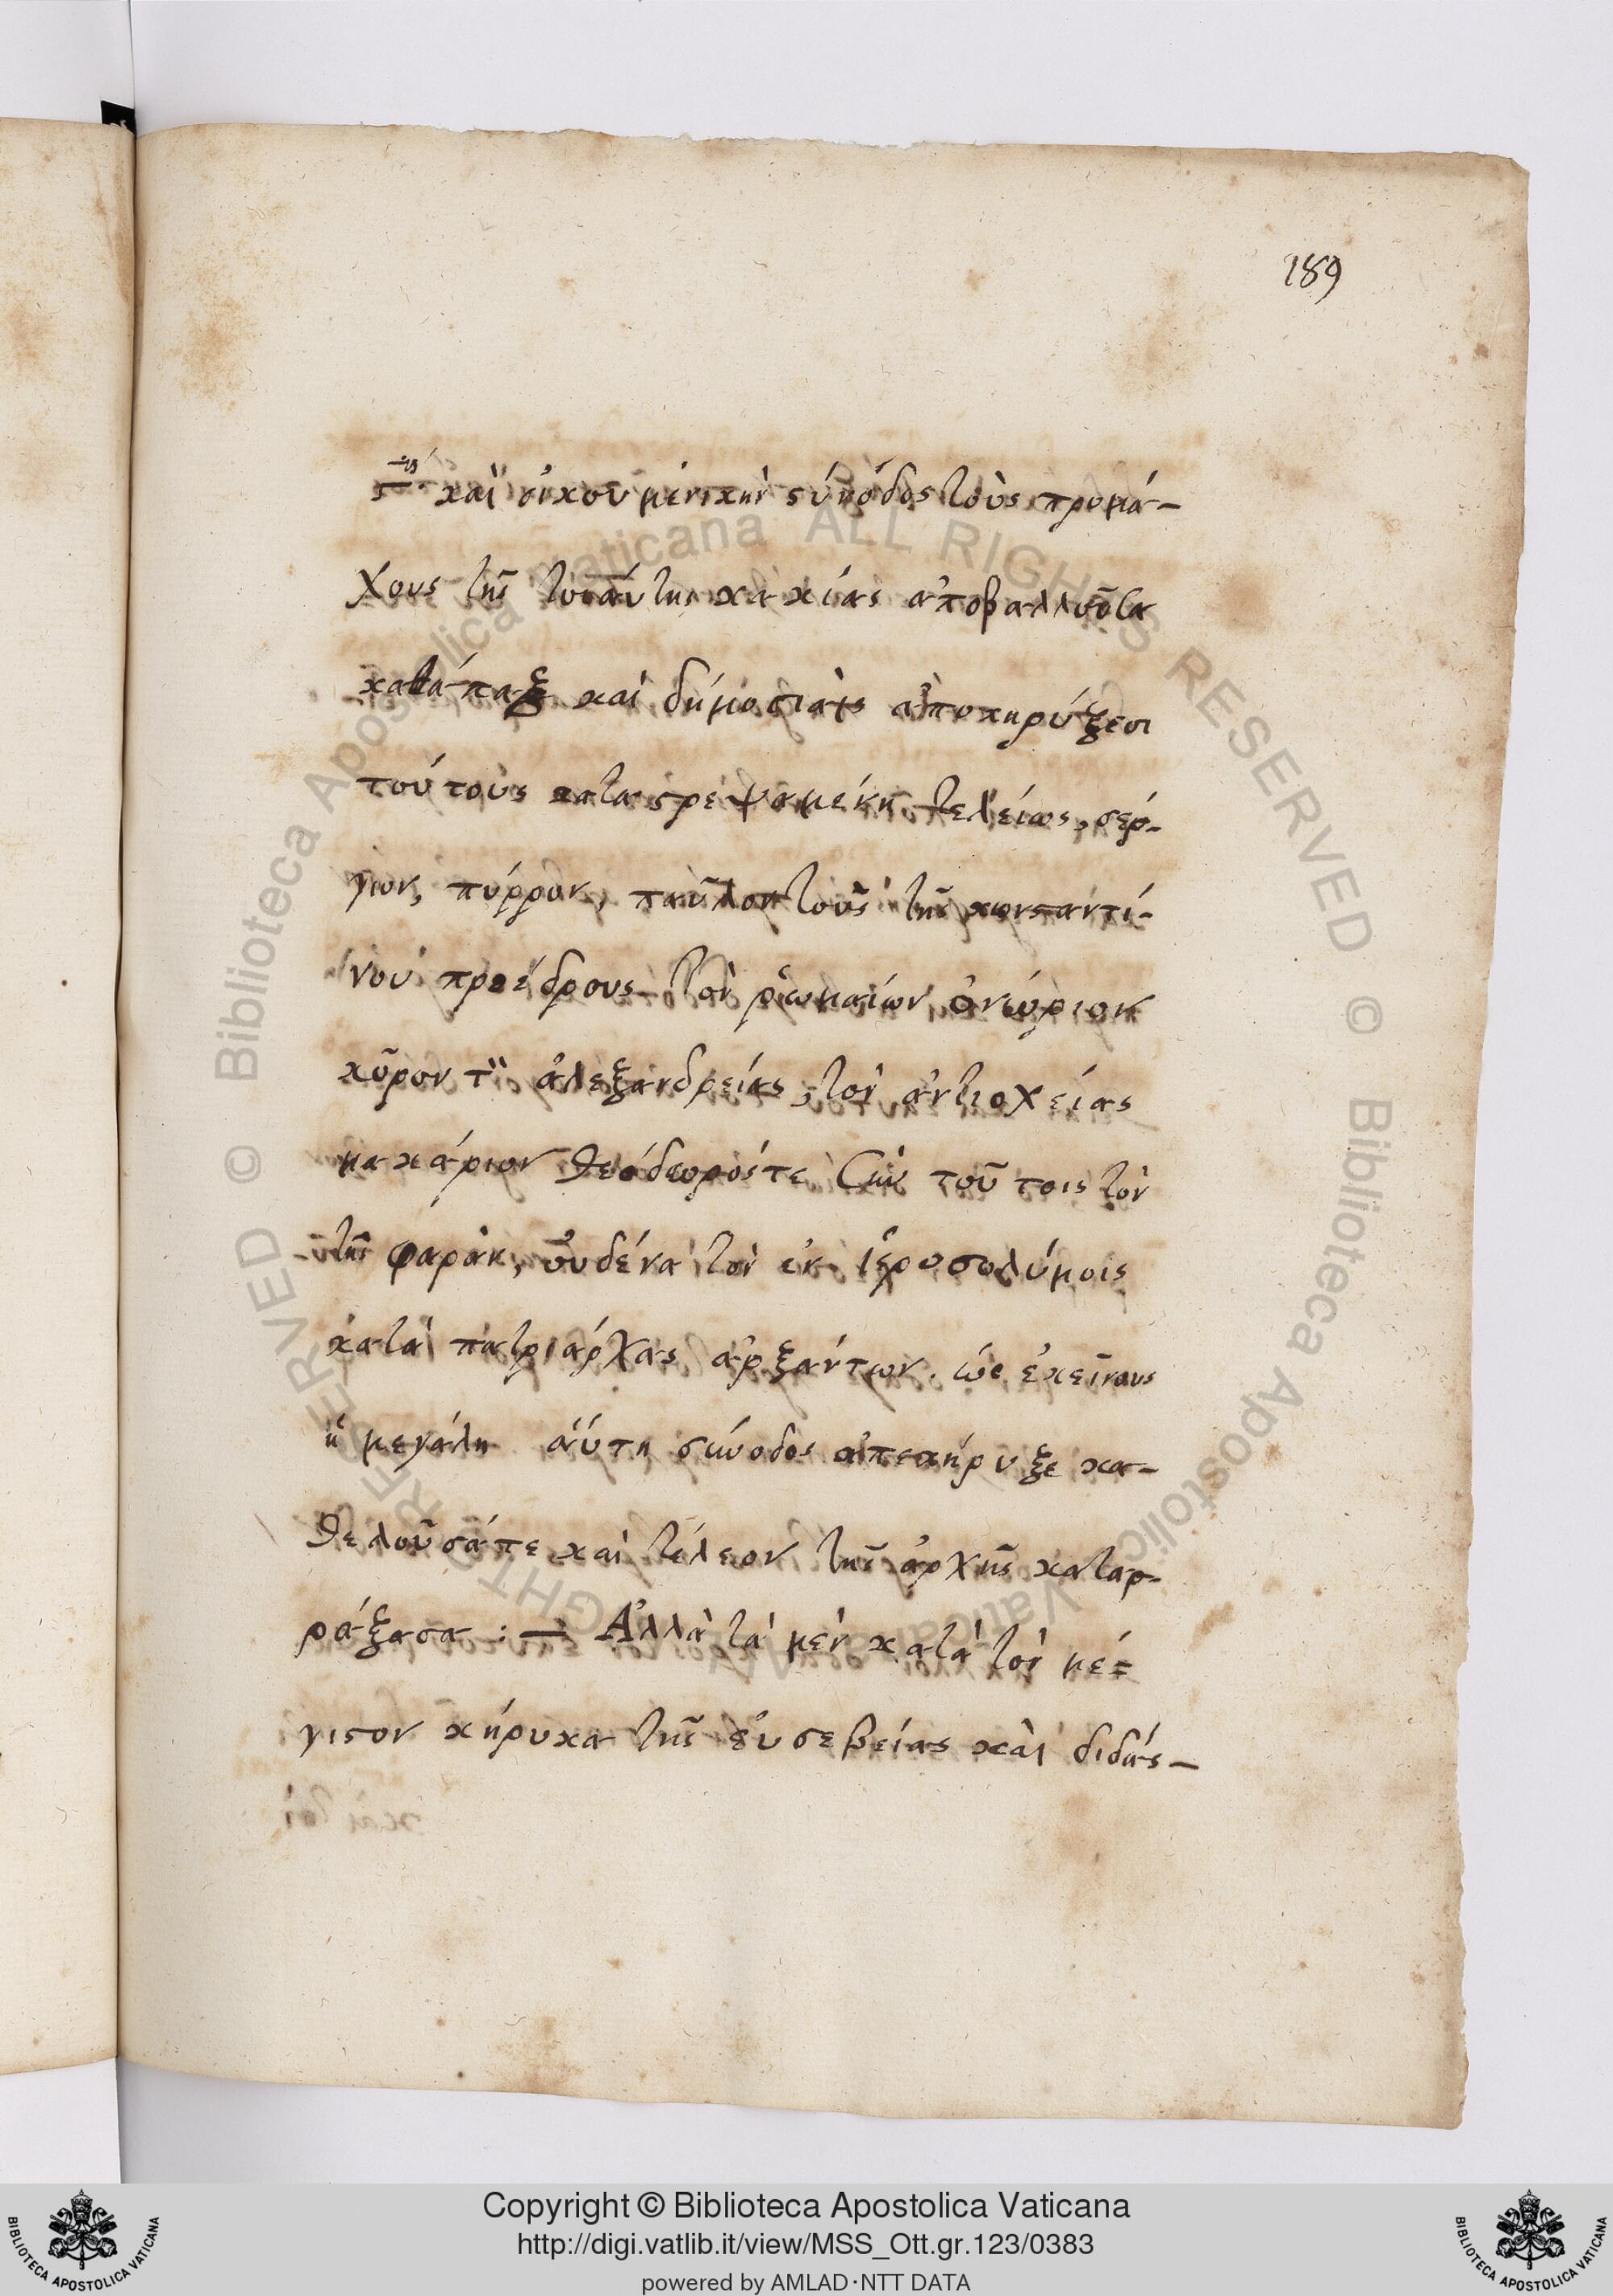 189
ϛ΄ καὶ οἰκουμενικὴν σύνοδος τοὺς προμά-
χους τῆς τοσαύτης κακίας ἀποβαλλοῦσα
κατάπαξ καὶ δημοσίαις ἀποκηρύξεσι
τούτους καταστρεψαμένη τελείως, σέρ-
γιον, πύρρον, παῦλον τοὺς τῆς κωνσταντί-
νου προέδρους τὸν ῥωμαίων ὀνώριον
κῦρον τὸ ἀλεξανδρείας, τὸν ἀντιοχείας
μακάριον θεόδωρόςτε σὺν τούτοις τὸν
τῆς φαρὰν, οὐδένα τὸν ἐν ἱεροσολύμοις
κατὰ πατριάρχας ἀρξάντων. ὡς ἐκείνους
ἡ μεγάλη αὕτη σύνοδος ἀπεκήρυξε κα-
θελοῦσάτε καὶ τέλεον τῆς ἀρχῆς καταρ-
ράξασα :— Ἀλλὰ τὰ μὲν κατὰ τὸν μέ-
γιστον κήρυκα τῆς εὐσεβείας καὶ διδάσ-
Copyright © Biblioteca Apostolica Vaticana
http://digi.vatlib.it/view/MSS_Ott.gr.123/0383
powered by AMLAD·NTT DATA
BIBLIOTECA APOSTOLICA VATICANA
BIBLIOTECA APOSTOLICA VATICANA
© Biblioteca Apostolica Vaticana ALL RIGHTS RESERVED © Biblioteca Apostolica Vaticana ALL RIGHTS RESERVED